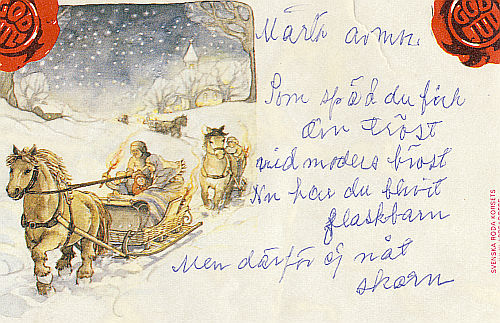 GOD JUL
GOD JUL
Märta
Som späd du fick
Din tröst
vid moders bröst
Nu har du blivit
flaskbarn
Men därför ej nåt
skarn
SVENSKA RÖDA KORSETS